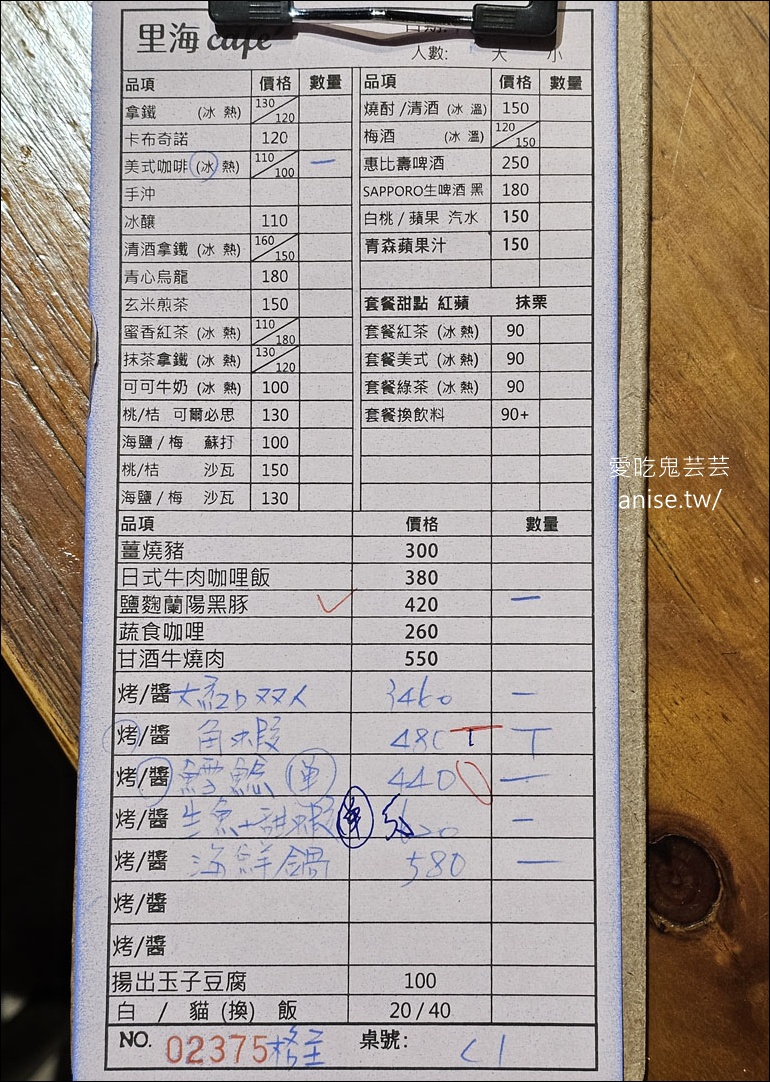 里海 café
人數: 大 小
品項 價格 數量
拿鐵 (冰 熱) 130/120
卡布奇諾 120
美式咖啡 (冰 熱) 110/100 一
手沖
冰釀 110
清酒拿鐵 (冰 熱) 160/150
青心烏龍 180
玄米煎茶 150
蜜香紅茶 (冰 熱) 110/180
抹茶拿鐵 (冰 熱) 130/120
可可牛奶 (冰 熱) 100
桃/桔 可爾必思 130
海鹽/梅 蘇打 100
桃/桔 沙瓦 150
海鹽/梅 沙瓦 130
品項 價格 數量
燒酎/清酒 (冰 溫) 150
梅酒 (冰 溫) 120/150
惠比壽啤酒 250
SAPPORO生啤酒 黑 180
白桃/蘋果 汽水 150
青森蘋果汁 150
套餐甜點 紅蘋 抹栗
套餐紅茶 (冰 熱) 90
套餐美式 (冰 熱) 90
套餐綠茶 (冰 熱) 90
套餐換飲料 90+
品項 價格 數量
薑燒豬 300
日式牛肉咖哩飯 380
鹽麴蘭陽黑豚 420 一
蔬食咖哩 260
甘酒牛燒肉 550
烤/醬 双人 3460 一
烤/醬 角蝦 480 T T
烤/醬 鱈鯰 單 440 一
烤/醬 生魚+甜蝦 單 一
烤/醬 海鮮鍋 580 一
烤/醬
烤/醬
揚出玉子豆腐 100
白 / 貓 (換) 飯 20/40
NO. 02375 桌號:
愛吃鬼芸芸
anise.tw/